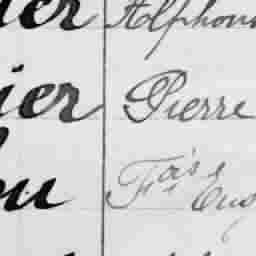 ier Alphons
ier Pierre
ou Fois Eug